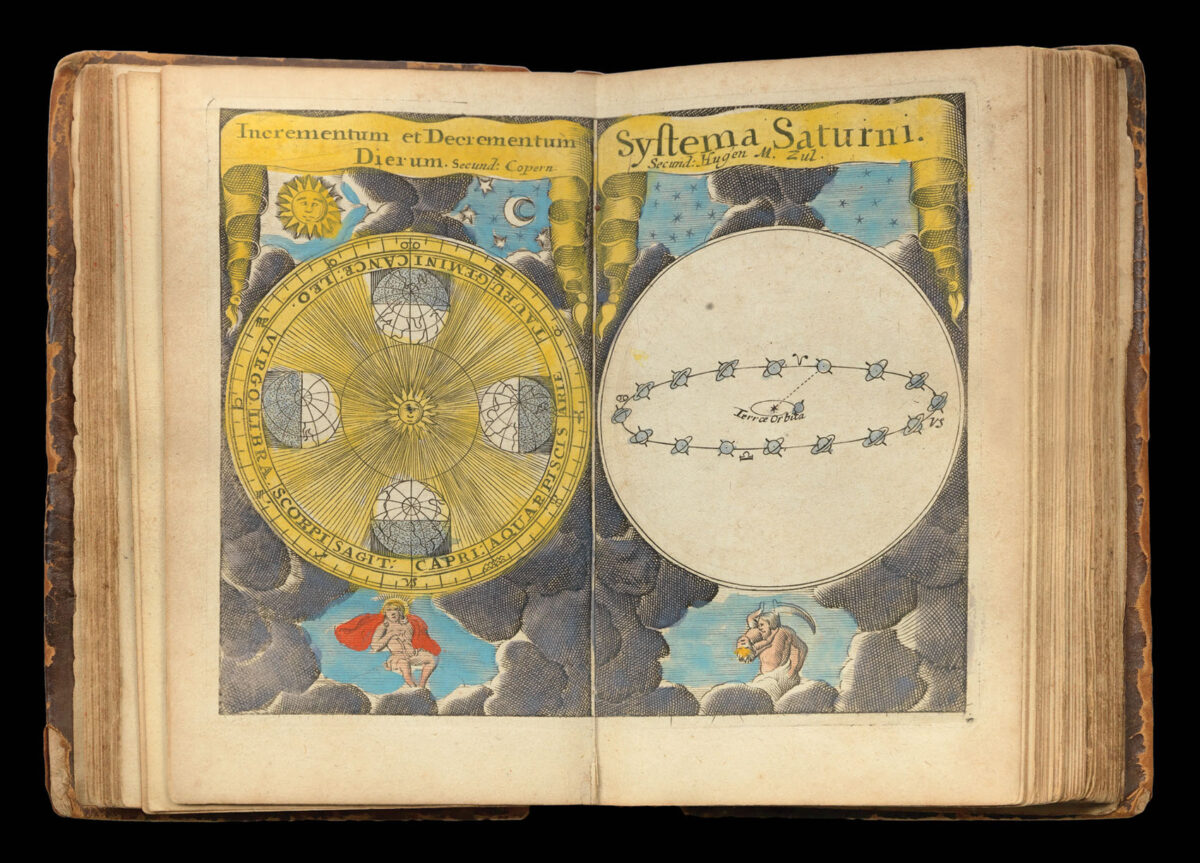 Incrementum et Decrementum
Dierum. Secund: Copern
ARIE TAURU GEMINI CANCE: LEO. VIRGO LIBRA. SCORPI SAGIT: CAPRI: AQUAR PISCIS
Syſtema Saturni.
Secund: Hugen M. Zul.
♈
♋
Terræ Orbita
♑
♎